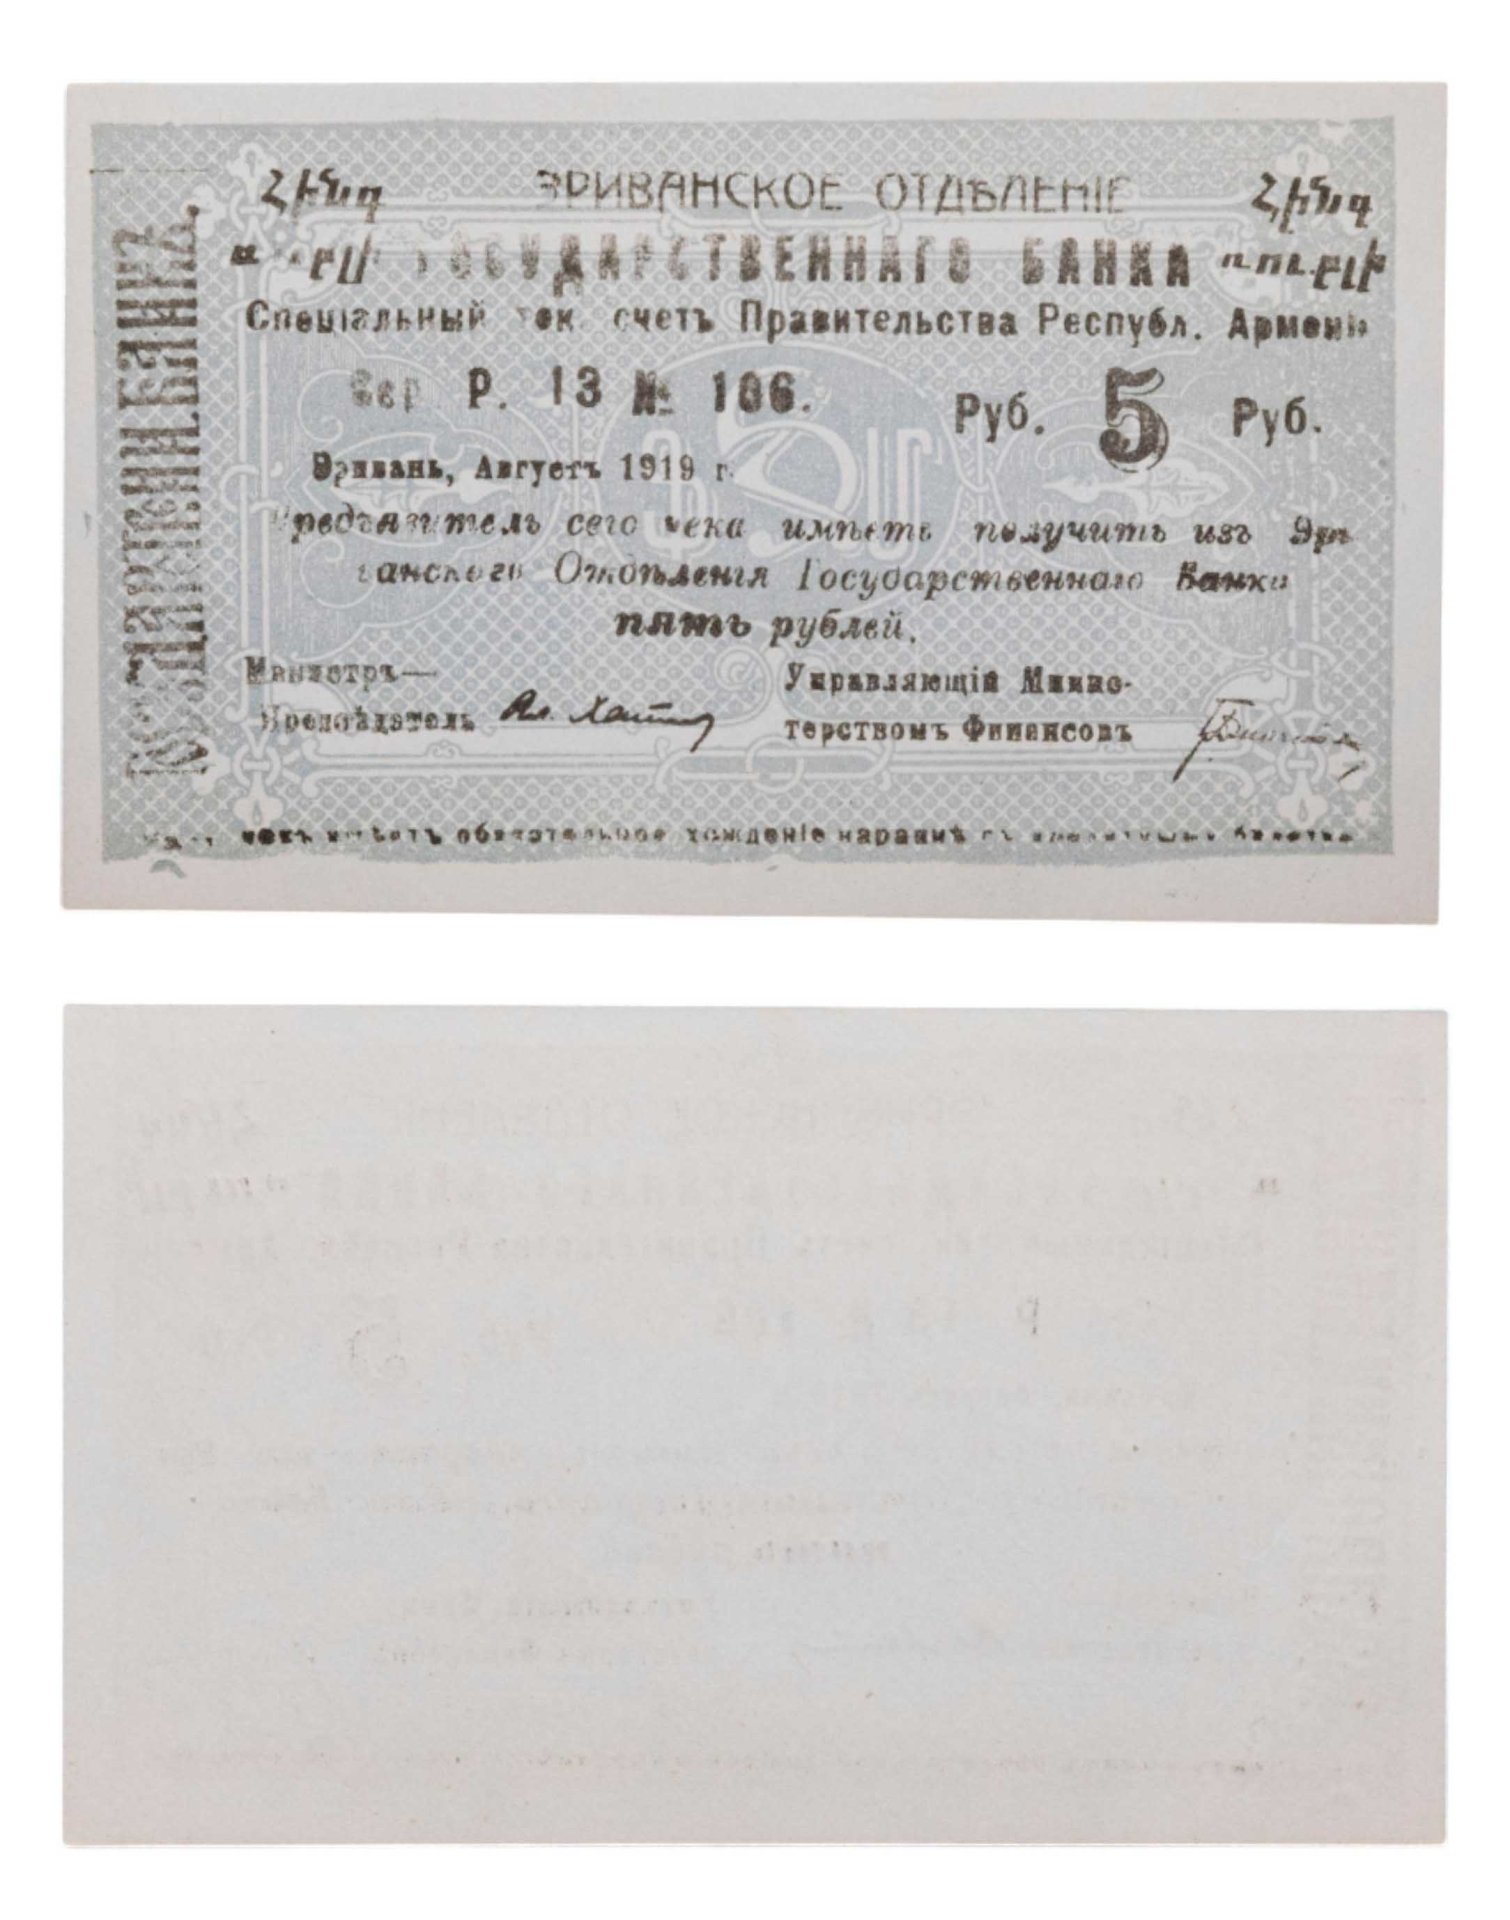 Հինգ
ЭРИВАНСКОЕ ОТДѢЛЕНІЕ
Հինգ
ГОСУДАРСТВЕННАГО БАНКА
ռուբլի
Спеціальный тек. счетъ Правительства Республ. Арменіи
Сер. Р. 13 № 106.
Руб. 5 Руб.
Эривань, Августъ 1919 г.
Предъявитель сего чека имѣетъ получить изъ Эри
ванского Отдѣленія Государственнаго Банка
пять рублей.
Министръ—
Предсѣдатель Ал. Хатис
Управляющій Минис-
терствомъ Финансовъ
чекъ имѣетъ обязательное хожденіе наравнѣ съ кредитными билетами